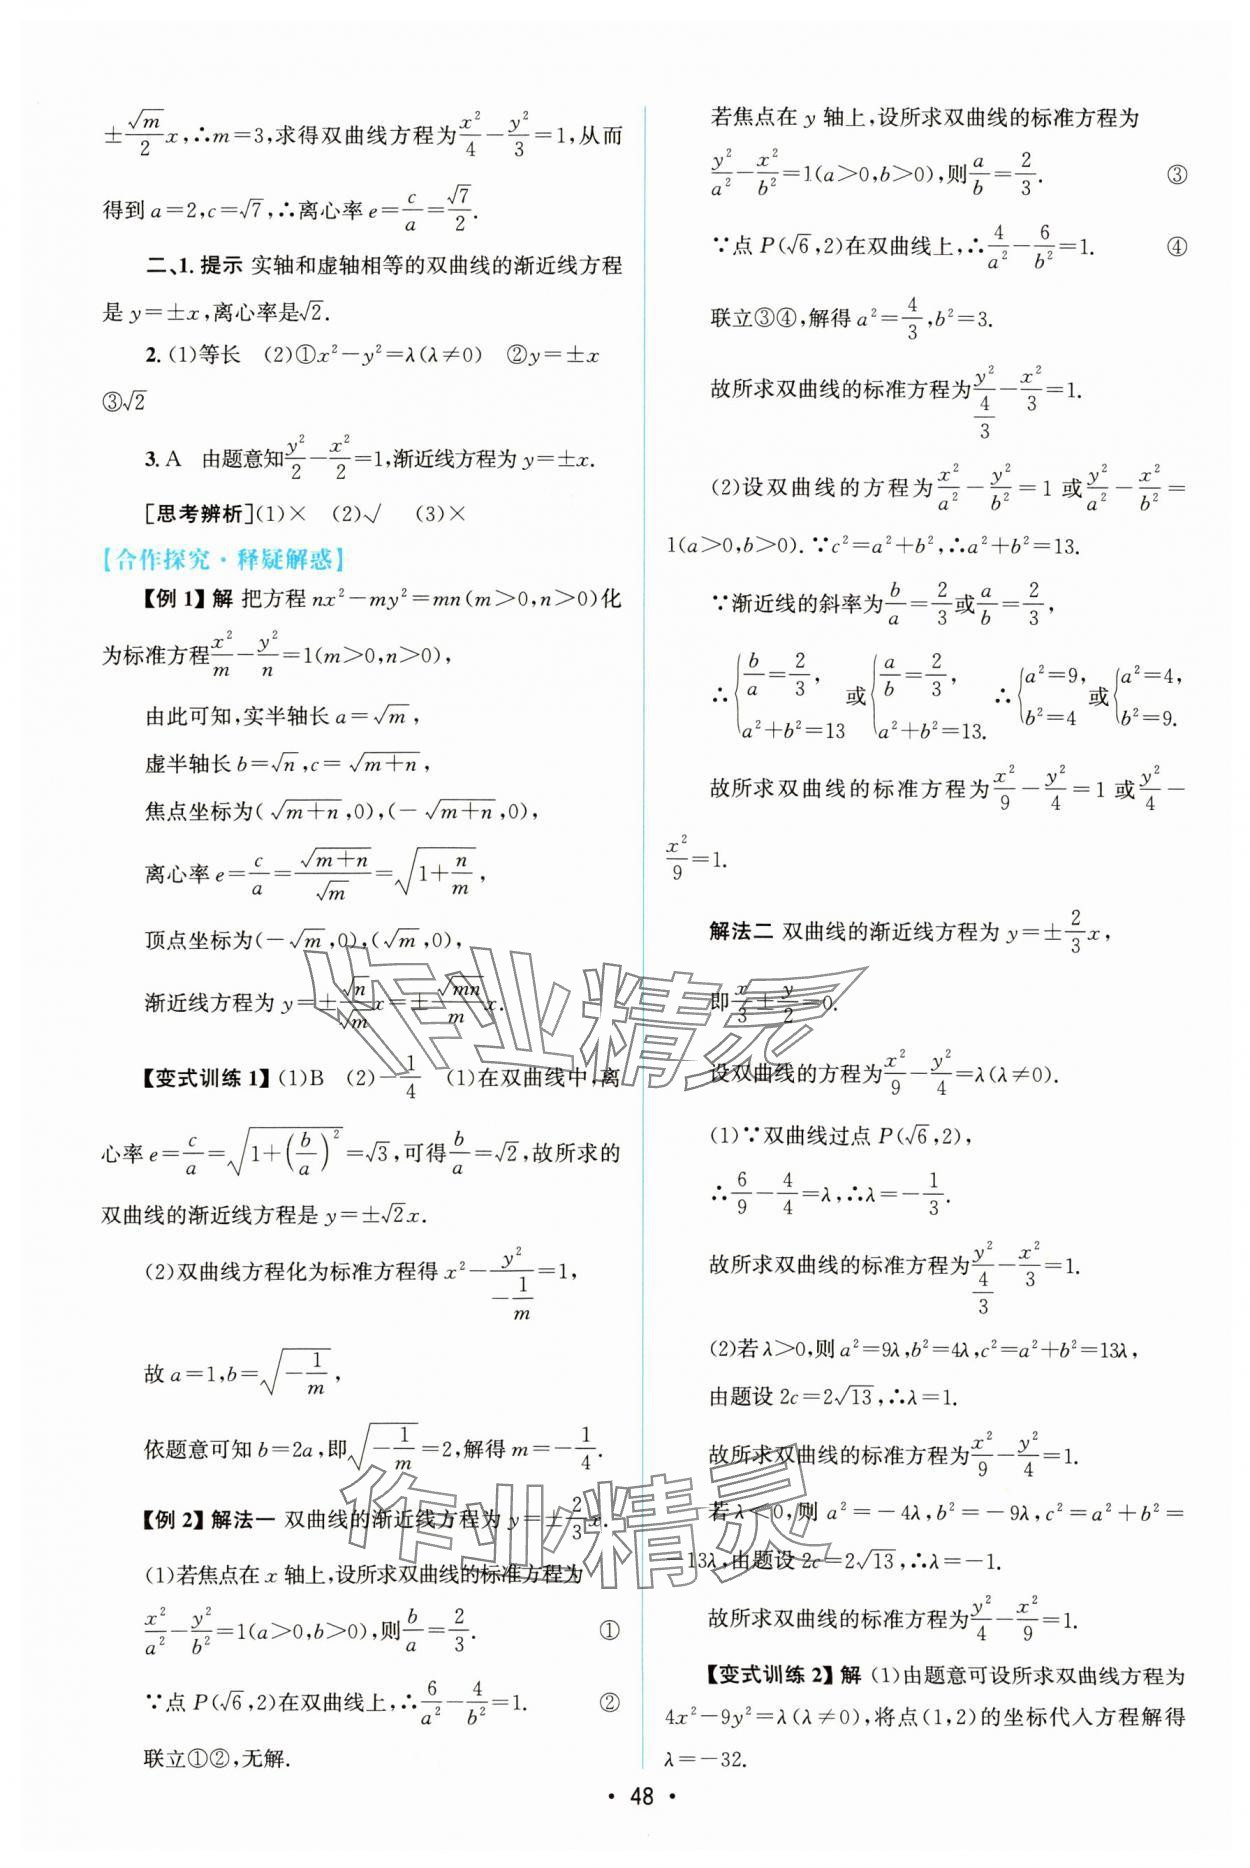 ±√m/2 x,∴m=3,求得双曲线方程为x²/4-y²/3=1,从而
得到a=2,c=√7,∴离心率e=c/a=√7/2.
二、1.提示 实轴和虚轴相等的双曲线的渐近线方程
是y=±x,离心率是√2.
2.(1)等长 (2)①x²-y²=λ(λ≠0) ②y=±x
③√2
3.A 由题意知y²/2-x²/2=1,渐近线方程为y=±x.
[思考辨析](1)× (2)√ (3)×
【合作探究·释疑解惑】
【例1】解 把方程nx²-my²=mn(m>0,n>0)化
为标准方程x²/m-y²/n=1(m>0,n>0),
由此可知,实半轴长a=√m,
虚半轴长b=√n,c=√(m+n),
焦点坐标为(√(m+n),0),(-√(m+n),0),
离心率e=c/a=√(m+n)/√m=√(1+n/m),
顶点坐标为(-√m,0),(√m,0),
渐近线方程为y=±√n/√m x=±√(mn)/m x.
【变式训练1】(1)B (2)-1/4 (1)在双曲线中,离
心率e=c/a=√(1+(b/a)²)=√3,可得b/a=√2,故所求的
双曲线的渐近线方程是y=±√2x.
(2)双曲线方程化为标准方程得x²-y²/(-1/m)=1,
故a=1,b=√(-1/m),
依题意可知b=2a,即√(-1/m)=2,解得m=-1/4.
【例2】解法一 双曲线的渐近线方程为y=±2/3 x.
(1)若焦点在x轴上,设所求双曲线的标准方程为
x²/a²-y²/b²=1(a>0,b>0),则b/a=2/3. ①
∵点P(√6,2)在双曲线上,∴6/a²-4/b²=1. ②
联立①②,无解.
若焦点在y轴上,设所求双曲线的标准方程为
y²/a²-x²/b²=1(a>0,b>0),则a/b=2/3. ③
∵点P(√6,2)在双曲线上,∴4/a²-6/b²=1. ④
联立③④,解得a²=4/3,b²=3.
故所求双曲线的标准方程为y²/(4/3)-x²/3=1.
(2)设双曲线的方程为x²/a²-y²/b²=1或y²/a²-x²/b²=
1(a>0,b>0).∵c²=a²+b²,∴a²+b²=13.
∵渐近线的斜率为b/a=2/3或a/b=2/3,
∴{b/a=2/3, a²+b²=13 或{a/b=2/3, a²+b²=13. ∴{a²=9, b²=4 或{a²=4, b²=9.
故所求双曲线的标准方程为x²/9-y²/4=1或y²/4-
x²/9=1.
解法二 双曲线的渐近线方程为y=±2/3 x,
即x/3±y/2=0.
设双曲线的方程为x²/9-y²/4=λ(λ≠0).
(1)∵双曲线过点P(√6,2),
∴6/9-4/4=λ,∴λ=-1/3.
故所求双曲线的标准方程为y²/(4/3)-x²/3=1.
(2)若λ>0,则a²=9λ,b²=4λ,c²=a²+b²=13λ,
由题设2c=2√13,∴λ=1.
故所求双曲线的标准方程为x²/9-y²/4=1.
若λ<0,则a²=-4λ,b²=-9λ,c²=a²+b²=
-13λ,由题设2c=2√13,∴λ=-1.
故所求双曲线的标准方程为y²/4-x²/9=1.
【变式训练2】解 (1)由题意可设所求双曲线方程为
4x²-9y²=λ(λ≠0),将点(1,2)的坐标代入方程解得
λ=-32.
作业精灵
作业精灵
· 48 ·